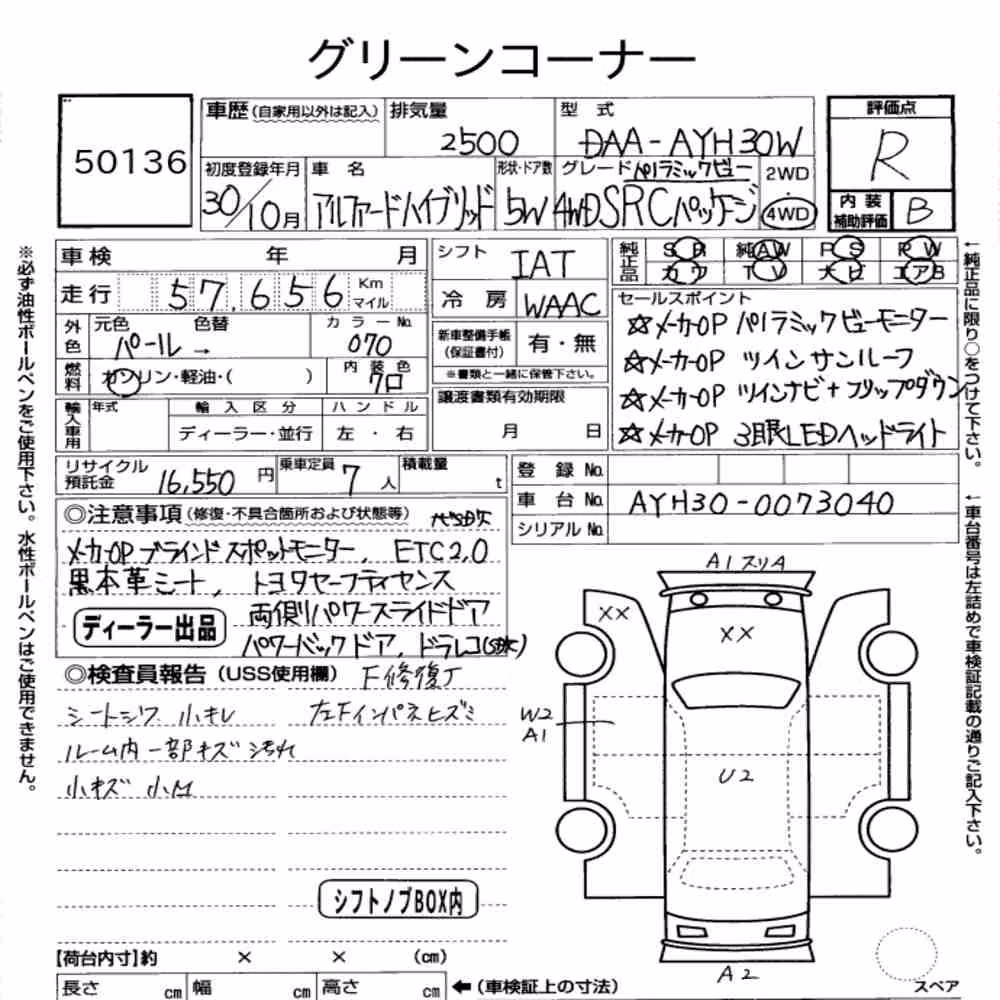 グリーンコーナー
50136
車歴(自家用以外は記入) 排気量 2500
型式 DAA-AYH30W
評価点 R
初度登録年月 30/10月
車名 アルファードハイブリッド
形状・ドア数 5W
グレード パノラミックビュー 4WD SRCパッケージ
2WD・4WD
内装補助評価 B
車検 年 月
シフト IAT
純正品 SR 純AW PS PW
カワ TV ナビ エアB
走行 57,656 Km マイル
冷房 WAAC
セールスポイント
☆メーカーOP パノラミックビューモニター
☆メーカーOP ツインサンルーフ
☆メーカーOP ツインナビ+フリップダウン
☆メーカーOP 3眼LEDヘッドライト
外色 元色 パール → 色替 カラーNo. 070
新車整備手帳(保証書付) 有・無
※書類と一緒に保管下さい。
燃料 ガソリン・軽油・( ) 内装色 クロ
譲渡書類有効期限 月 日
輸入車用 年式 輸入区分 ディーラー・並行 ハンドル 左・右
リサイクル預託金 16,550円 乗車定員 7人 積載量 t
登録No.
車台No. AYH30-0073040
シリアルNo.
◎注意事項(修復・不具合箇所および状態等)
メーカーOPブラインドスポットモニター, ETC2.0
黒本革シート, トヨタセーフティセンス
両側パワースライドドア
ディーラー出品
パワーバックドア, ドラレコ
◎検査員報告(USS使用欄) F修復J
シートシワ 小キレ 左Fインパネヒズミ
ルーム内一部キズ汚れ
小キズ 小凹
シフトノブBOX内
A1スリA
XX
XX
W2
A1
U2
A2
スペア
【荷台内寸】約 × × (cm)
長さ cm 幅 cm 高さ cm ←(車検証上の寸法)
※必ず油性ボールペンをご使用下さい。水性ボールペンはご使用できません。
←純正品に限り○をつけて下さい。
←車台番号は左詰めで車検証記載の通りご記入下さい。